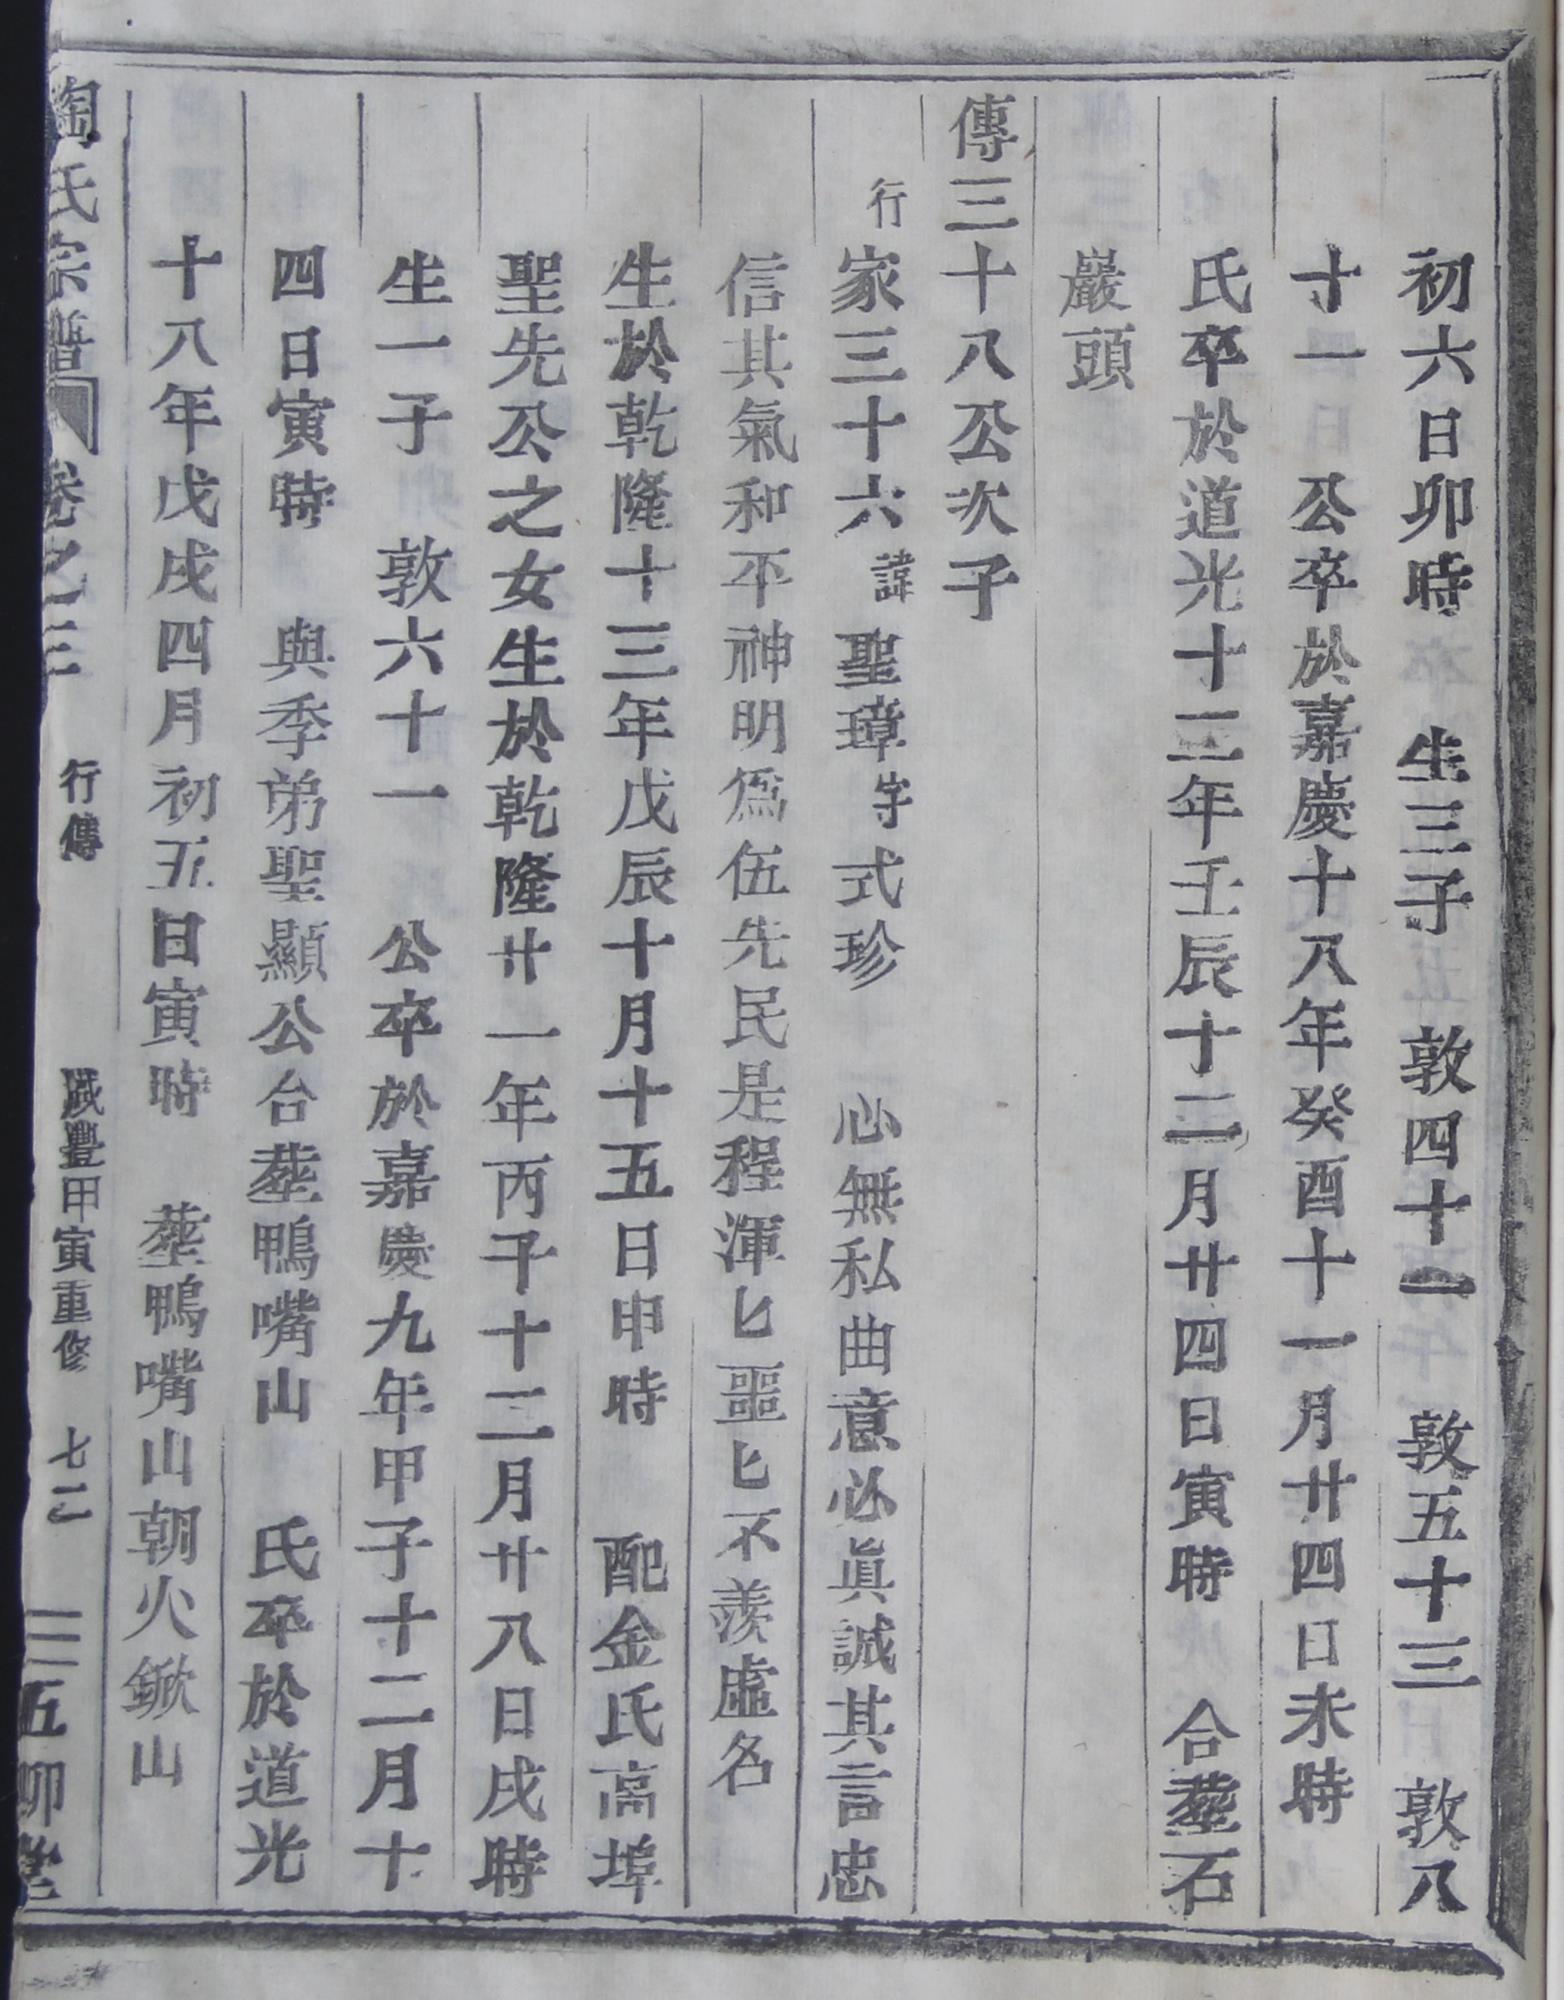 初六日卯時　生三子　敦四十二　敦五十三　敦八
十一　公卒於嘉慶十八年癸酉十一月廿四日未時
氏卒於道光十二年壬辰十二月廿四日寅時　合塟石
巖頭
傳三十八公次子
行家三十六諱聖璋字式珍　心無私曲意必眞誠其言忠
信其氣和平神明為伍先民是程渾匕噩匕不羨虛名
生於乾隆十三年戊辰十月十五日申時　配金氏高埠
聖先公之女生於乾隆廿一年丙子十二月廿八日戌時
生一子　敦六十一　公卒於嘉慶九年甲子十二月十
四日寅時　與季弟聖顯公合塟鴨嘴山　氏卒於道光
十八年戊戌四月初五日寅時　塟鴨嘴山朝火鍁山
陶氏宗譜　卷之三　行傳　咸豐甲寅重修　七二　五柳堂